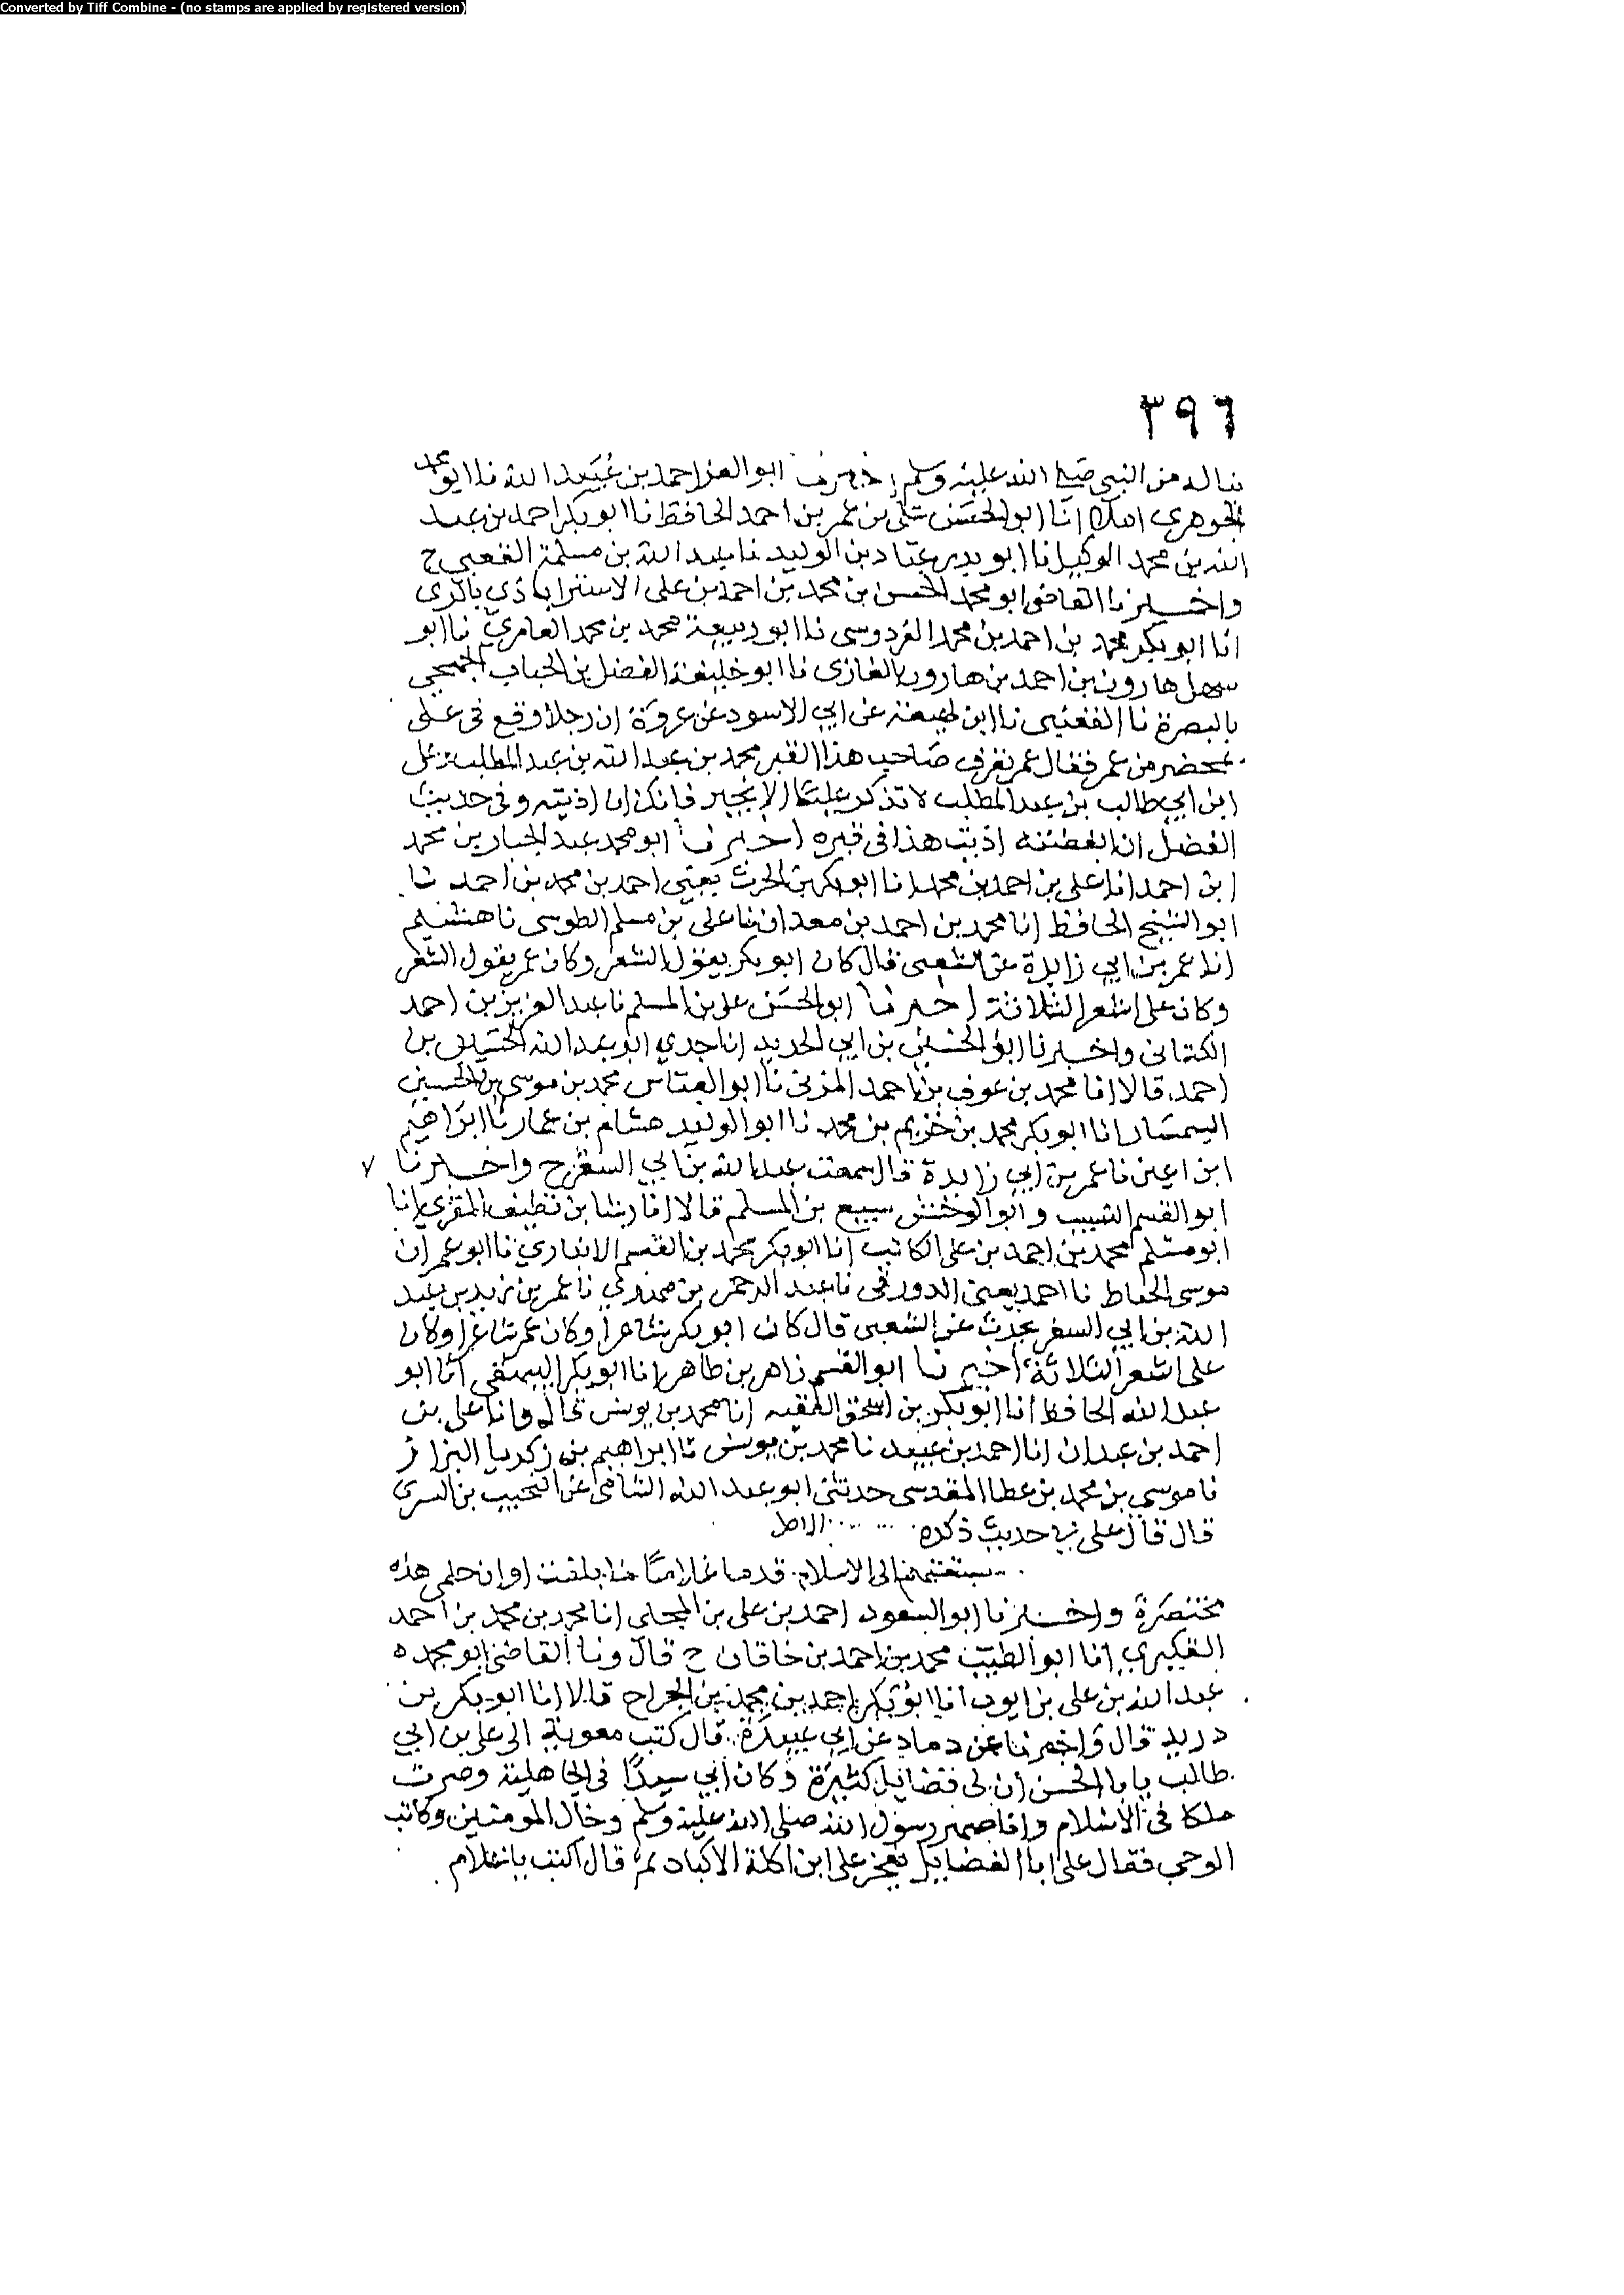 Converted by Tiff Combine - (no stamps are applied by registered version)
٣٩٦
من النبي صلى الله عليه وسلم اخبرنا ابو العز احمد بن عُبَيد الله نا ابو محمد
الجوهري املا انا ابو الحسَن علي بن عمر بن احمد الحافظ نا ابو بكر احمد بن عبد
الله بن محمد الوكيل نا ابو بدر عباد بن الوليد نا عبد الله بن مسلمة القعبي ح
واخبرنا القاضي ابو محمد الحسن بن محمد بن احمد بن علي الاستراباذي بالري
انا ابو بكر محمد بن احمد بن محمد الفردوسي نا ابو ربيعة محمد بن محمد العامري نا ابو
سهل هارون بن احمد بن هارون الغازي نا ابو خليفة الفضل بن الحباب الجمحي
بالبصرة نا القعنبي نا ابن لهيعة عن ابي الاسود عن عروة ان رجلا وقع في علي
بمحضر من عمر فقال عمر تعرف صَاحب هذا القبر محمد بن عبد الله بن عبد المطلب وعلي
ابن ابي طالب بن عبد المطلب لا تذكر عليّا الا بخير فانك ان اذيته وفي حديث
الفضل ان ابغضته اذيت هذا في قبره اخبرنا ابو محمد عبد الجبار بن محمد
ابن احمد انا علي بن احمد بن محمد انا ابو بكر بن الحرث يعني احمد بن محمد بن احمد نا
ابو الشيخ الحافظ انا محمد بن احمد بن معدان نا علي بن مسلم الطوسي نا هشيم
انا عمر بن ابي زايدة عن الشعبي قال كان ابو بكر يقول الشعر وكان عمر يقول الشعر
وكان علي اشعر الثلاثة اخبرنا ابو الحسَن علي بن المسلم نا عبد العزيز بن احمد
الكتاني واخبرنا ابو الحسين بن ابي الحديد انا جدي ابو عبد الله الحسين بن
احمد قالا انا محمد بن عوف بن احمد المزني نا ابو العباس محمد بن موسى بن الحسين
السمسَار انا ابو بكر محمد بن خريم بن محمد نا ابو الوليد هشام بن عمار نا ابرَاهيم
ابن اعين نا عمر بن ابي زايدة قال سمعت عبد الله بن ابي السفر ح واخبرنا ٧
ابو القسم النسيب و ابو الوحش سبيع بن المسلم قالا انا رشا بن نظيف المقري انا
ابو مسْلم محمد بن احمد بن علي الكاتب انا ابو بكر محمد بن القسم الانباري نا ابو عمران
موسى الخياط نا احمد يعني الدورقي نا عبد الرحمن بن مهدي نا عمر بن عبد
الله بن ابي السفر يحدث عن الشعبي قال كان ابو بكر شاعرا وكان عمر شاعرا وكان
علي اشعر الثلاثة اخبرنا ابو القسم زاهر بن طاهر انا ابو بكر البيهقي انا ابو
عبد الله الحافظ انا ابو بكر بن اسحق الفقيه انا محمد بن يونس قال وانا علي بن
احمد بن عبدان انا احمد بن عبيد نا محمد بن يونس نا ابراهيم بن زكريا البزاز
نا موسى بن محمد بن عطا المقدسي حدثني ابو عبد الله الشامي عن النجيب بن السري
قال قال علي في حديث ذكره
سبقتهم الى الاسلام قدما غلاما ما بلغت اوان حلمي هذه
مختصَرة واخبرنا ابو السعود احمد بن علي بن المجلي انا محمد بن محمد بن احمد
العكبري انا ابو الطيّب محمد بن احمد بن خاقان ح قال ونا القاضي ابو محمد
عبد الله بن علي بن ايوب انا ابو بكر احمد بن محمد بن الجراح قالا انا ابو بكر بن
دريد قال واخبرنا عن دماد عن ابي عبيدة قال كتب معوية الى علي بن ابي
طالب يا ابا الحسن ان لي فضايل كثيرة وكان ابي سيدًا في الجاهلية وصرت
ملكا في الاسْلام وانا صهر رسول الله صلى الله عليه وسلم وخال المومنين وكاتب
الوحي فقال علي ابا الفضايل يفخر علي ابن اكلة الاكباد ثم قال اكتب يا غلام